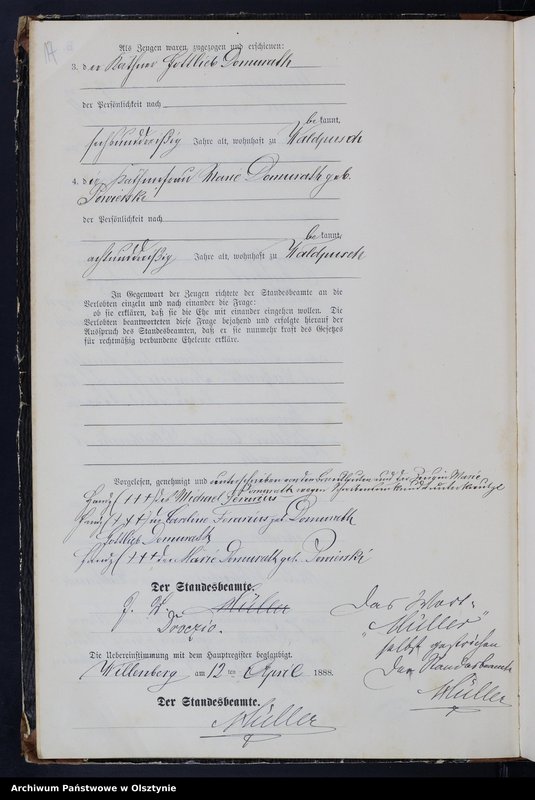 17
Als Zeugen waren zugezogen und erschienen:
3. der Käthner Gottlieb Domurath
der Persönlichkeit nach
bekannt,
sechsunddreißig Jahre alt, wohnhaft zu Waldpusch
4. die Käthnerfrau Marie Domurath geb.
der Persönlichkeit nach
bekannt,
achtunddreißig Jahre alt, wohnhaft zu Waldpusch
In Gegenwart der Zeugen richtete der Standesbeamte an die
Verlobten einzeln und nach einander die Frage:
ob sie erklären, daß sie die Ehe mit einander eingehen wollen. Die
Verlobten beantworteten diese Frage bejahend und erfolgte hierauf der
Ausspruch des Standesbeamten, daß er sie nunmehr kraft des Gesetzes
für rechtmäßig verbundene Eheleute erkläre.
Vorgelesen, genehmigt und unterschrieben von den Eheschließenden und der Zeugin Marie
Domurath wegen Schreibensunkunde unterkreuzt
Handz (+++) des Michael
Handz (+++) der geb. Domurath
Gottlieb Domurath
Handz (+++) der Marie Domurath geb.
Der Standesbeamte.
Müller
Das Wort
"Müller"
selbst gestrichen
Der Standesbeamte
Müller
Die Uebereinstimmung mit dem Hauptregister beglaubigt.
Willenberg am 12 ten April 1888.
Der Standesbeamte.
Müller
Archiwum Państwowe w Olsztynie